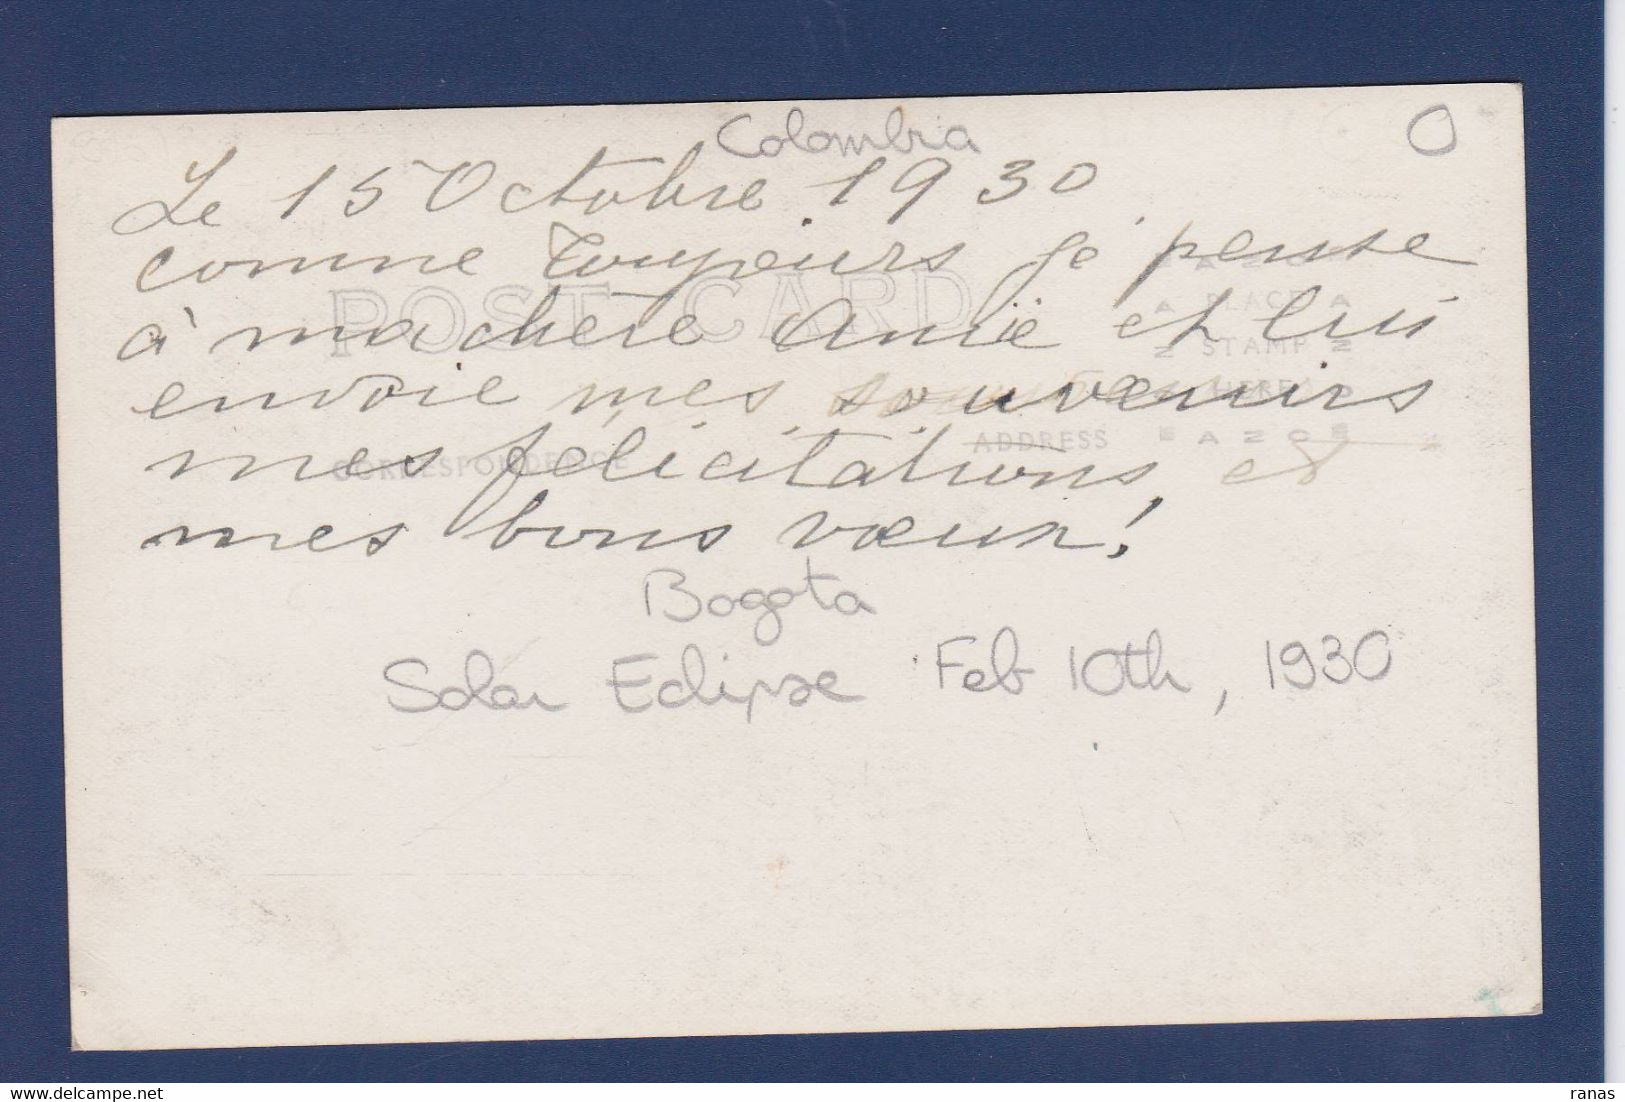 Colombia
O
Le 15 Octobre 1930
comme toujours je pense
à ma chère Amie et lui
envoie mes souvenirs
mes félicitations, et
mes bons vœux!
POST CARD
PLACE
STAMP
HERE
CORRESPONDENCE
ADDRESS
Bogota
Solar Eclipse Feb 10th, 1930
ranas